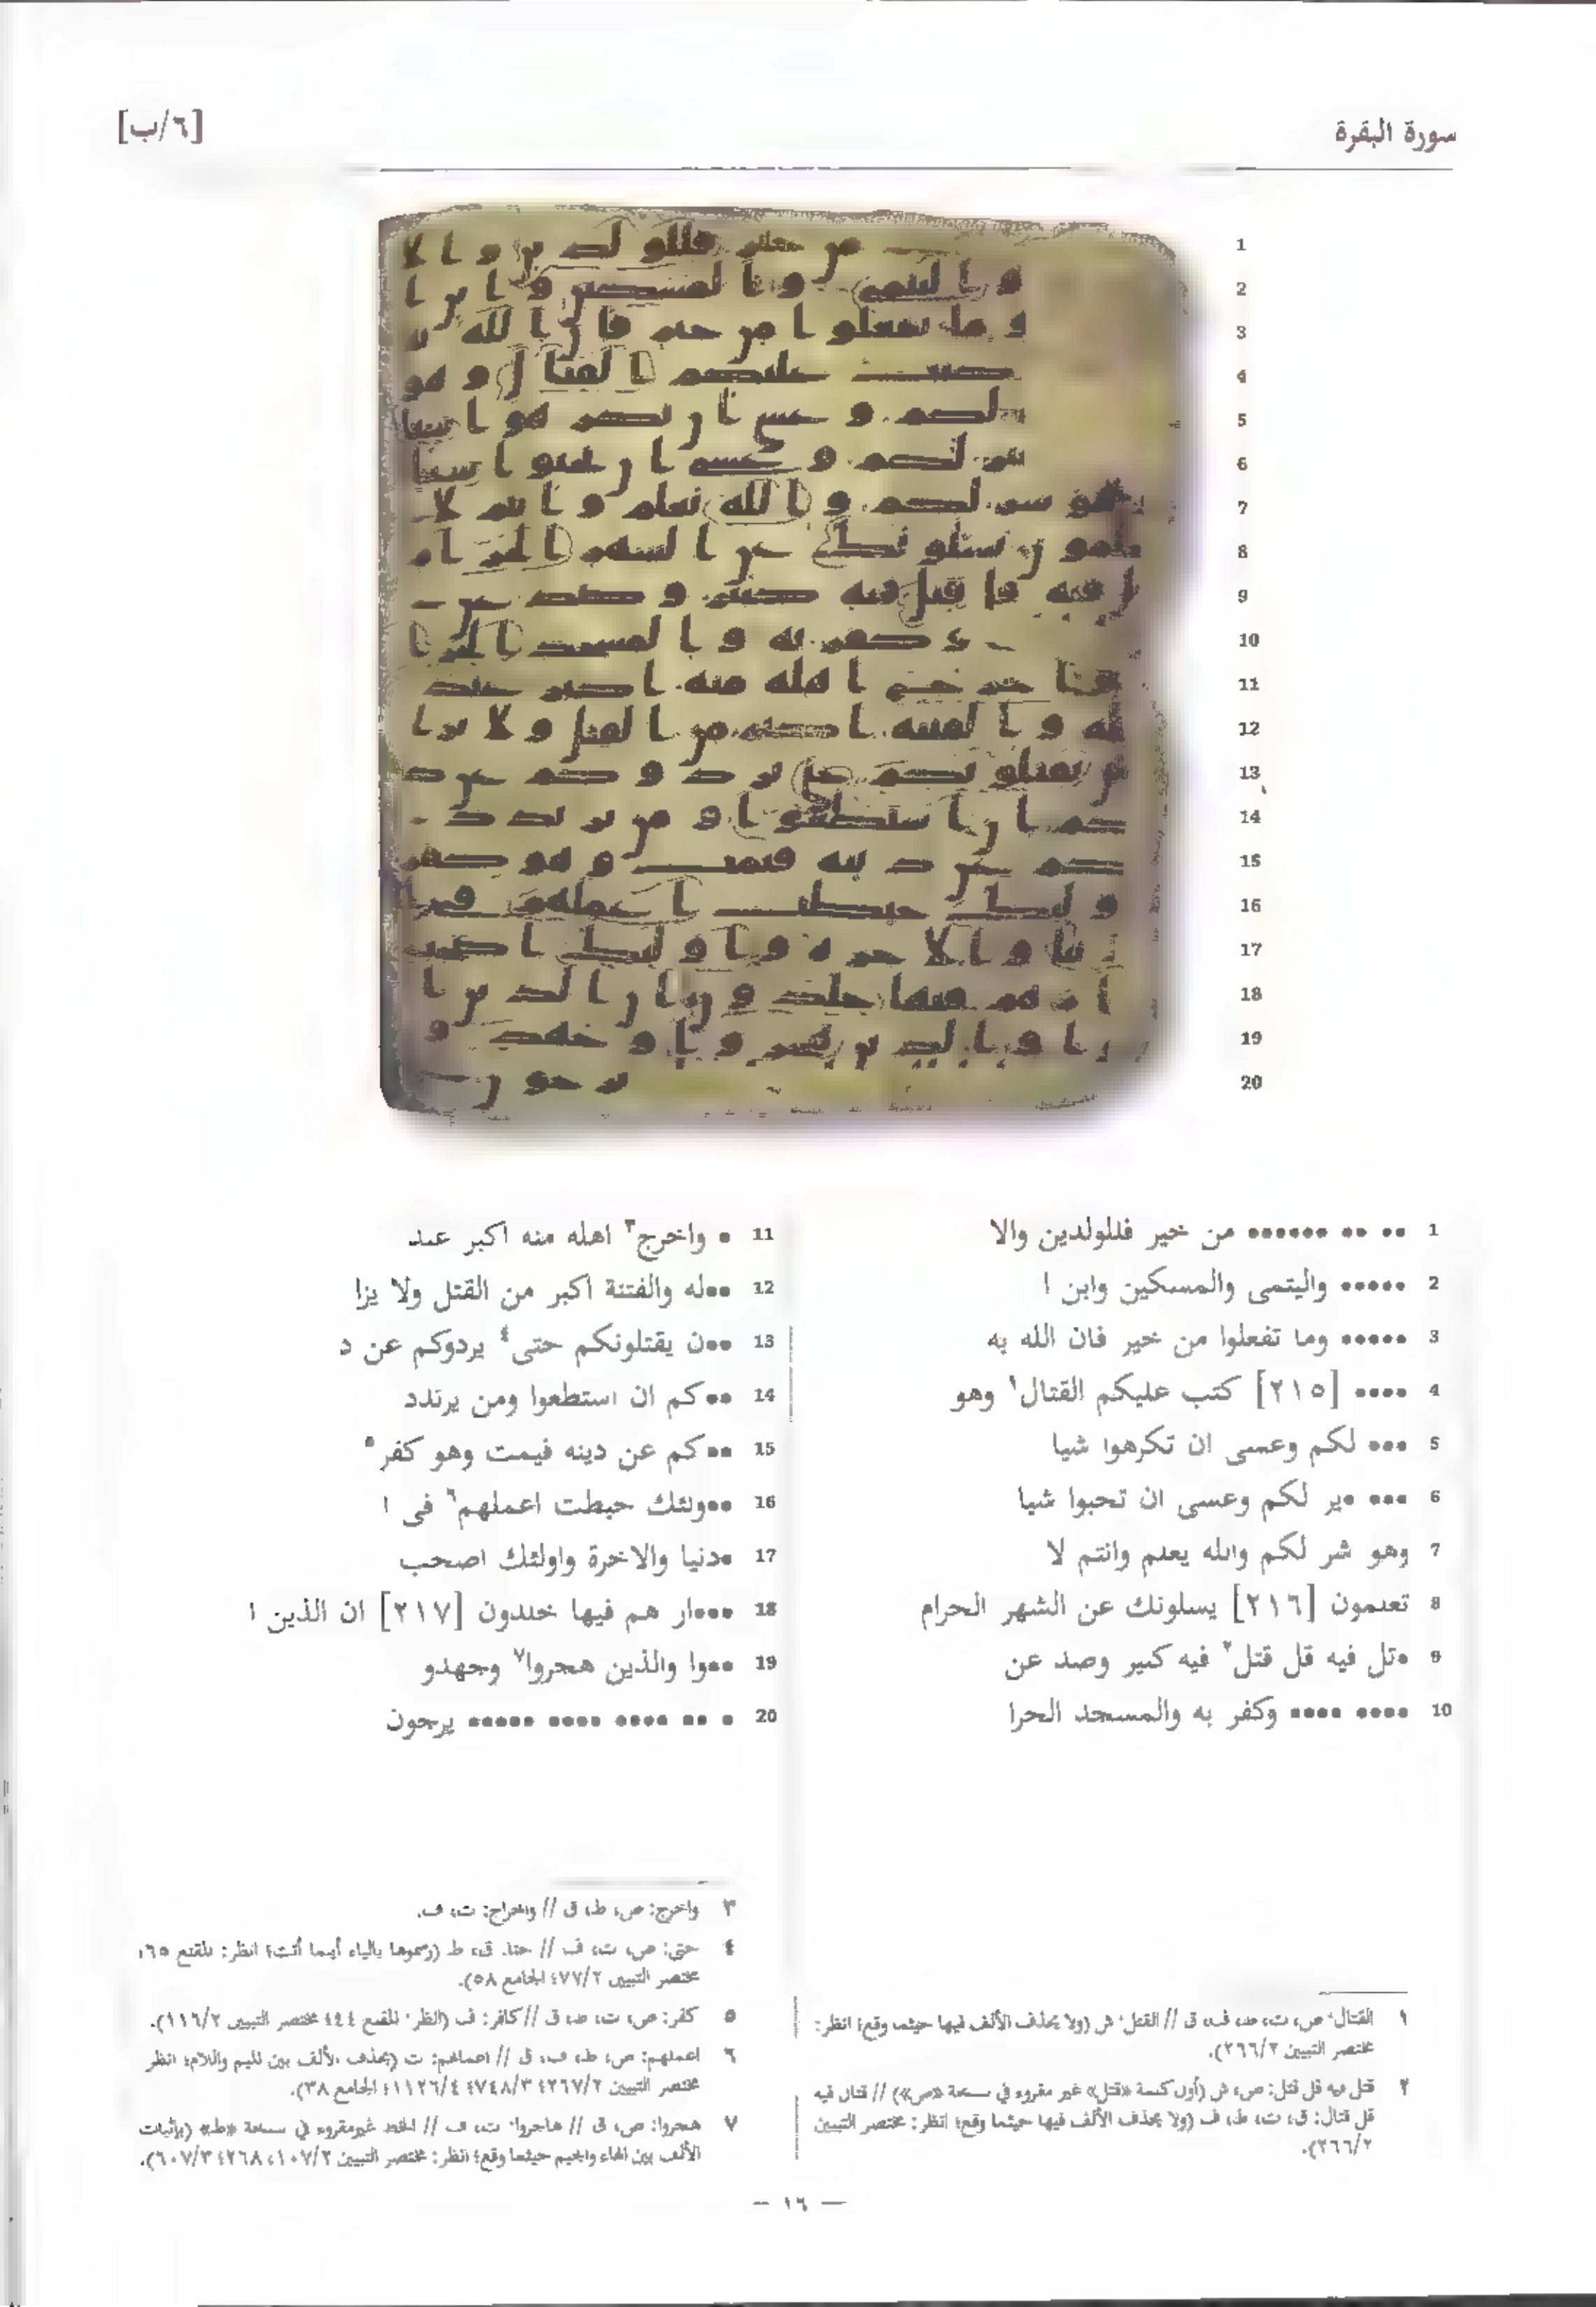 سورة البقرة
[٦/ب]
1 •• •• •••••• من خير فللولدين والا
2 ••••• واليتمى والمسكين وابن ا
3 ••••• وما تفعلوا من خير فان الله به
4 •••• [٢١٥] كتب عليكم القتال١ وهو
5 ••• لكم وعسى ان تكرهوا شيا
6 ••• •ير لكم وعسى ان تحبوا شيا
7 وهو شر لكم والله يعلم وانتم لا
8 تعلمون [٢١٦] يسلونك عن الشهر الحرام
9 •تل فيه قل قتل٢ فيه كبير وصد عن
10 •••• •••• وكفر به والمسجد الحرا
11 • واخرج٣ اهله منه اكبر عند
12 ••له والفتنة اكبر من القتل ولا يزا
13 ••ن يقتلونكم حتى٤ يردوكم عن د
14 ••كم ان استطعوا ومن يرتدد
15 ••كم عن دينه فيمت وهو كفر٥
16 ••ولئك حبطت اعملهم٦ فى ا
17 •دنيا والاخرة واولئك اصحب
18 •••ار هم فيها خلدون [٢١٧] ان الذين ا
19 ••وا والذين هجروا٧ وجهدو
20 • •• •••• •••• ••••• يرجون
١ القتال: ص، ت، ط، ف، ق // القتل: ش (ولا يحذف الألف فيها حيثما وقع؛ انظر:
مختصر التبيين ٢٦٦/٢).
٢ قتل فيه قل قتل: ص، ش (أول كلمة «قتل» غير مقروء في نسخة «ص») // قتال فيه
قل قتال: ق، ت، ط، ف (ولا يحذف الألف فيها حيثما وقع؛ انظر: مختصر التبيين
٢٦٦/٢).
٣ واخرج: ص، ط، ق // واخراج: ت، ف.
٤ حتى: ص، ت، ف // حتا: ق، ط (رسموها بالياء أينما أتت؛ انظر: المقنع ٦٥؛
مختصر التبيين ٧٧/٢؛ الجامع ٥٨).
٥ كفر: ص، ت، ط، ق // كافر: ف (انظر: المقنع ٤٤؛ مختصر التبيين ١١٦/٢).
٦ اعملهم: ص، ط، ف، ق // اعمالهم: ت (بحذف الألف بين الميم واللام؛ انظر
مختصر التبيين ٢٦٧/٢؛ ٧٤٨/٣؛ ١١٢٦/٤؛ الجامع ٣٨).
٧ هجروا: ص، ق // هاجروا: ت، ف // الخط غير مقروء في نسخة «ط» (بإثبات
الألف بين الهاء والجيم حيثما وقع؛ انظر: مختصر التبيين ١٠٧/٢، ٢٦٨؛ ٦٠٧/٣).
— ١٦ —